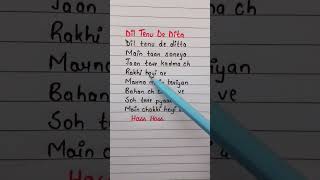 Dil Tenu De Dita
Dil tenu de ditta
Main taan soneya
Jaan teer kadma ch
Rakhi hoyi ae
Marna main teriyan
Bahan ch ve
Soh teer pyaar
Main chakki hoyi
Hass Hass